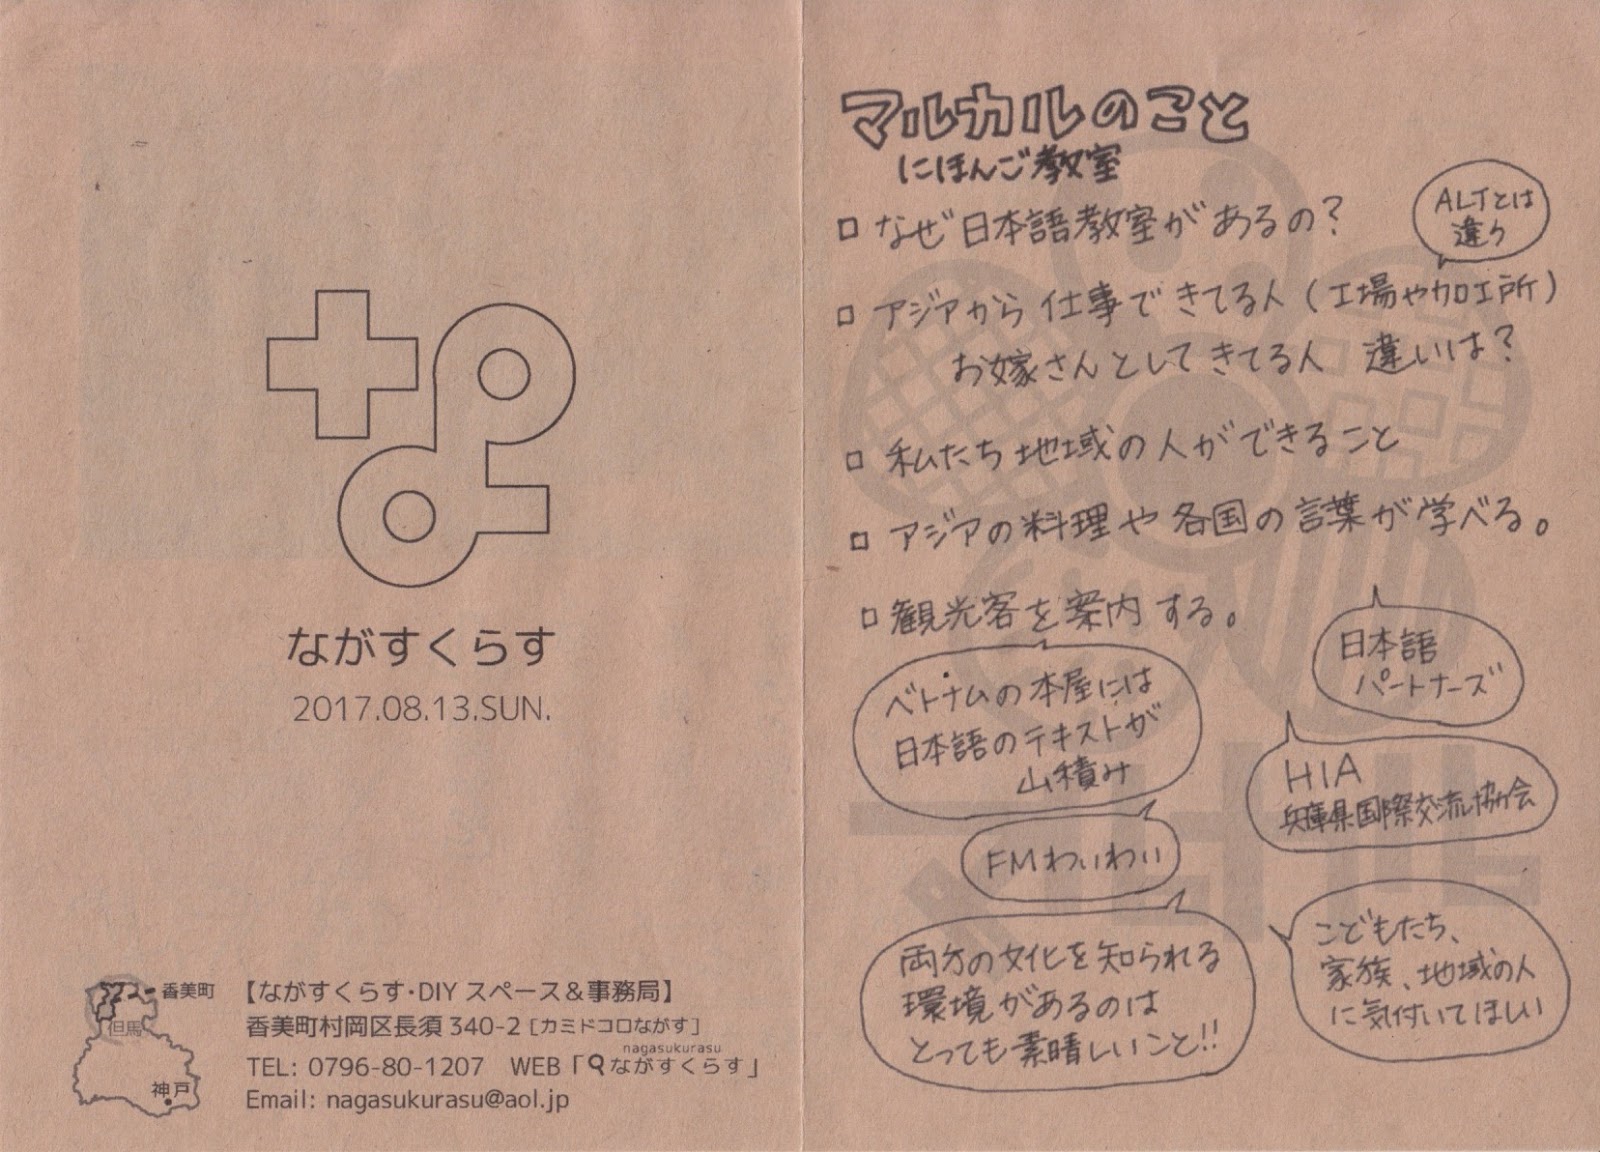 な
ながすくらす
2017.08.13.SUN.
香美町
但馬
神戸
【ながすくらす・DIY スペース＆事務局】
香美町村岡区長須 340-2 [カミドコロながす]
nagasukurasu
TEL: 0796-80-1207 WEB「ながすくらす」
Email: nagasukurasu@aol.jp
マルカルのこと
にほんご教室
□ なぜ日本語教室があるの？
ALTとは
違う
□ アジアから仕事できてる人（工場や加工所）
お嫁さんとしてきてる人 違いは？
□ 私たち地域の人ができること
□ アジアの料理や各国の言葉が学べる。
□ 観光客を案内する。
日本語
パートナーズ
ベトナムの本屋には
日本語のテキストが
山積み
HIA
兵庫県国際交流協会
FMわいわい
両方の文化を知られる
環境があるのは
とっても素晴しいこと!!
こどもたち、
家族、地域の人
に気付いてほしい